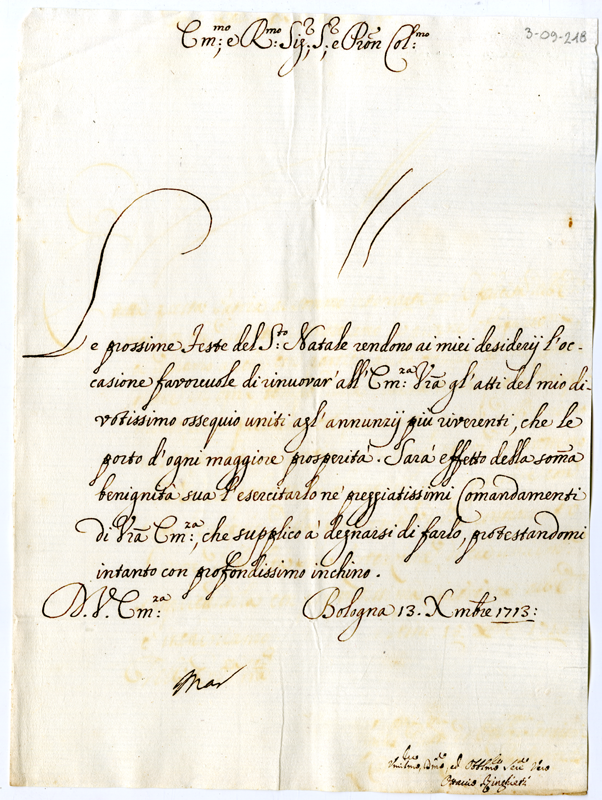 3-09-218
Em:mo e R:mo Sig:, S:, e Pron Col:mo
Le prossime Feste del S:to Natale rendono ai miei desiderij l'oc-
casione favoreuole di rinuovar' all'Em:za Vra gl'atti del mio di-
votissimo ossequio uniti agl'annunzij più riverenti, che le
porto d'ogni maggiore prosperità. Sarà effetto della soma
benignità sua l'esercitarlo ne' preggiatissimi Comandamenti
di Vra Em:za, che supplico à degnarsi di farlo, protestandomi
intanto con profondissimo inchino.
D. V. Em:za
Bologna 13. Xmbre 1713: